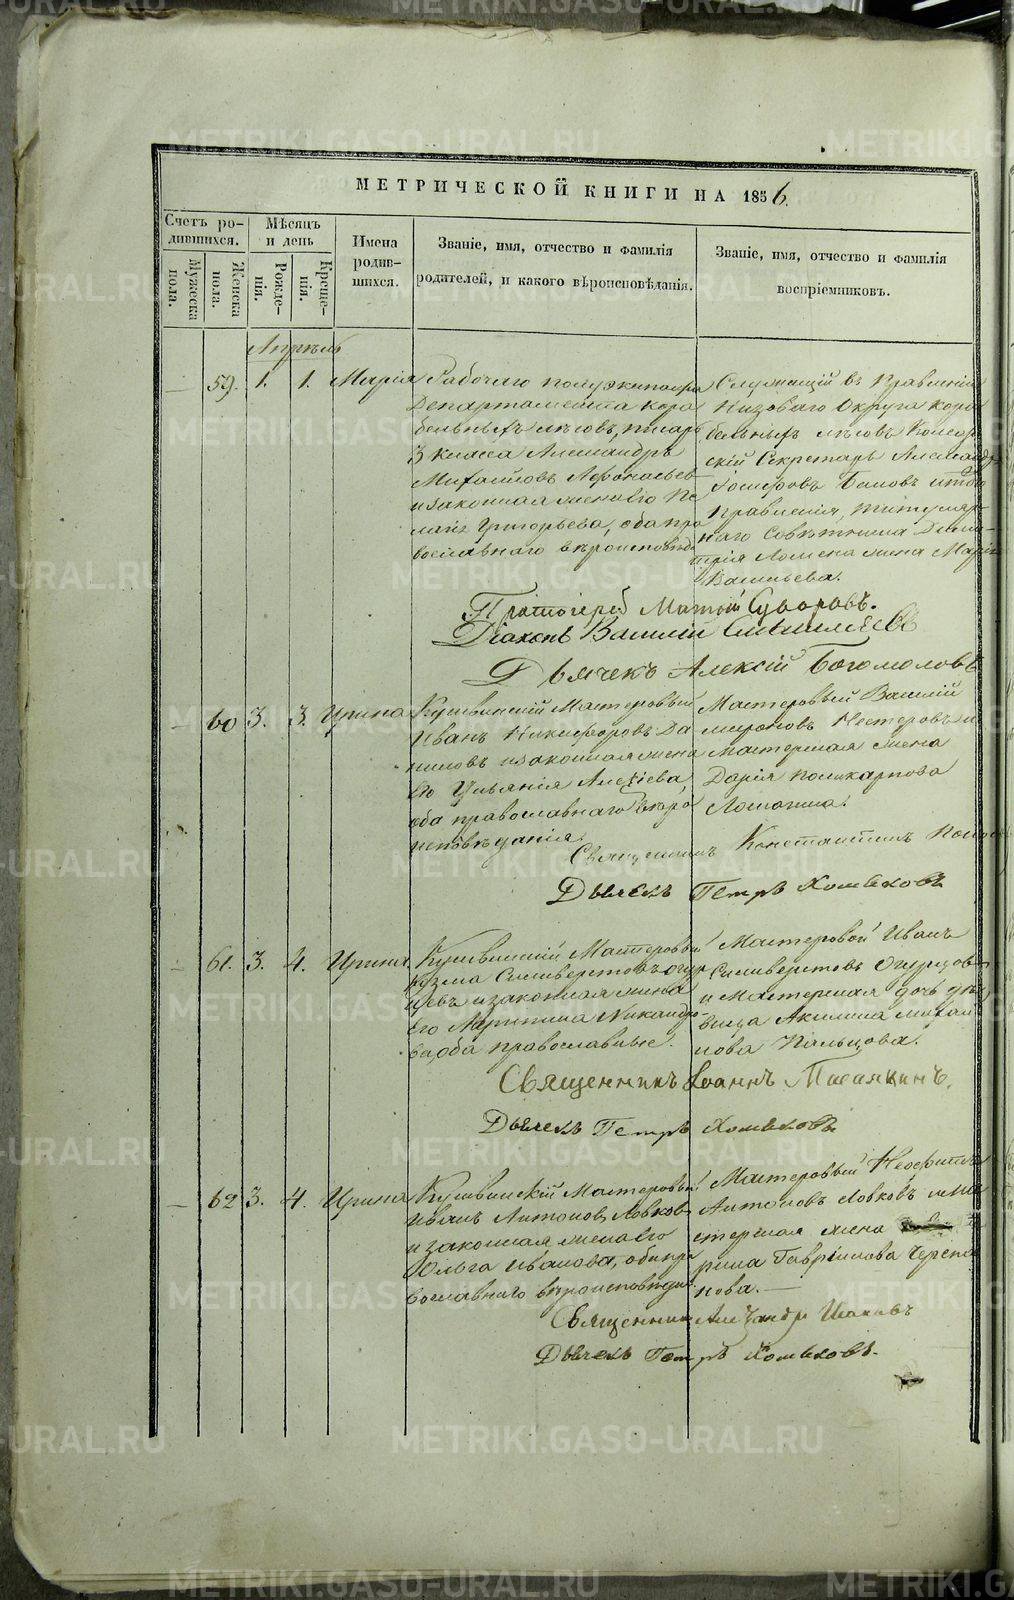 МЕТРИЧЕСКОЙ КНИГИ НА 1856.
Счетъ ро-
дившихся.
Мужеска
пола.
Женска
пола.
Мѣсяцъ
и день
Рожде-
нія.
Креще-
нія.
Имена
родив-
шихся.
Званіе, имя, отчество и фамилія
родителей, и какого вѣроисповѣданія.
Званіе, имя, отчество и фамилія
воспріемниковъ.
Апрѣль
59. 1. 1. Марія
Рабочаго полуэкипажа
Департамента кора
бельныхъ лѣсовъ, писарь
3 класса Александръ
Михайловъ
и законная жена его Пе
лагія Григорьева, оба пра
вославнаго вѣроисповѣд
Служащій въ Правленіи
Низоваго Округа кора
бельныхъ лѣсовъ Коллеж
скій Секретарь Александръ
Правленія, титуляр
наго Совѣтника Дими
трія жена Марія
Васильева.
Протоіерей Суворовъ.
Діаконъ Василій
Дьячекъ Алексій Богомоловъ
60 3. 3. Ирина
Кушвинскій Мастеровый
Иванъ Никифоровъ Да
ниловъ и законная жена
его Ульянія Алексіева,
оба православнаго вѣро
исповѣданія.
Мастеровый Василій
Мироновъ Нестеровъ и
Мастерская жена
Дарія Поликарпова
Священникъ Константинъ
Дьячекъ Петръ Хомяковъ
61. 3. 4. Ирина
Кушвинскій Мастеровый
Кузма Силиверстовъ Огур
цевъ и законная жена
его
оба православные.
Мастеровой Иванъ
Силиверстовъ Огурцовъ
и Мастерская дочь дѣ
вица Акилина Михаи
лова Пальцова.
Священникъ Іоаннъ
Дьячекъ Петръ Хомяковъ
62 3. 4. Ирина
Кушвинскій Мастеровый
Иванъ Антоновъ Ловковъ
и законная жена его
Ольга Иванова, оба пра
вославнаго вѣроисповѣдан.
Мастеровый Неофитъ
Антоновъ Ловковъ и ма
стерская жена
рина Гавріилова Черепа
нова.
Священникъ Александръ
Дьячекъ Петръ Хомяковъ.
METRIKI.GASO-URAL.RU